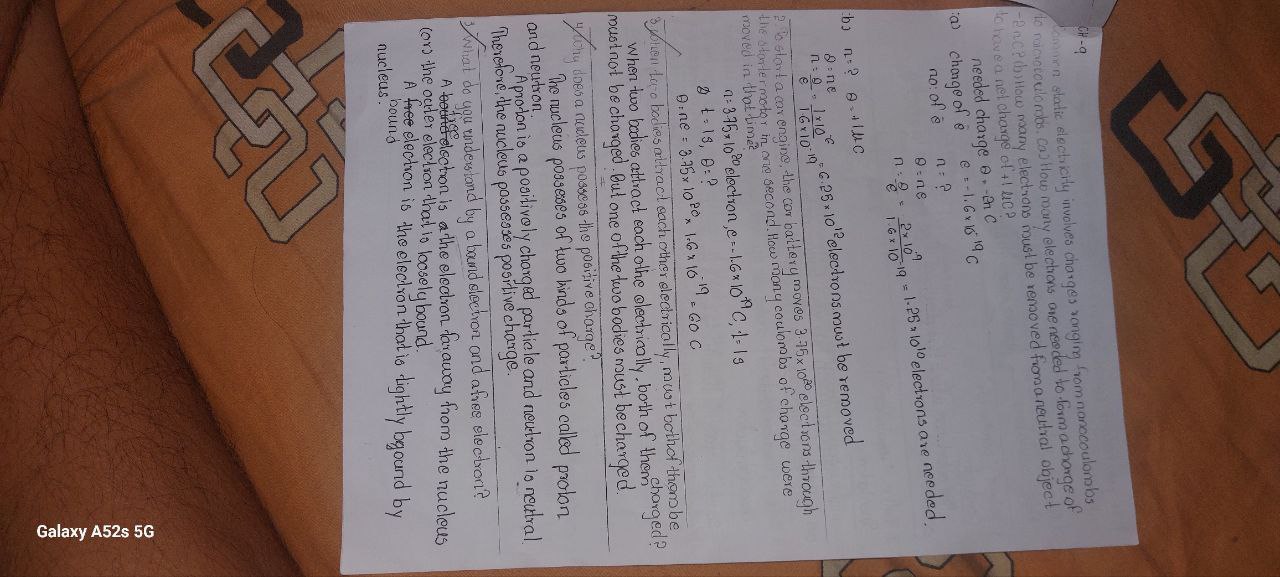 CH-9
Common static electricity involves charges ranging from nanocoulombs
to microcoulombs. (a) How many electrons are needed to form a charge of
-2nC? (b) How many electrons must be removed from a neutral object
to have a net charge of +1 μC?
needed charge Q = -2n C
(a) charge of ē e = -1.6 × 10⁻¹⁹ C
no: of ē n = ?
Q = ne
n = Q/e = 2×10⁻⁹/1.6×10⁻¹⁹ = 1.25 × 10¹⁰ electrons are needed.
(b) n = ? Q = +1 μC
Q = ne
n = Q/e = 1×10⁻⁶/1.6×10⁻¹⁹ = 6.25 × 10¹² electrons must be removed
2. To start a car engine, the car battery moves 3.75 × 10²⁰ electrons through
the starter motor in one second. How many coulombs of charge were
moved in that time?
n = 3.75 × 10²⁰ electron, e = -1.6 × 10⁻¹⁹ C, t = 1s
t = 1s, Q = ?
Q = ne = 3.75 × 10²⁰ × 1.6 × 10⁻¹⁹ = 60 C
3. When two bodies attract each other electrically, must both of them be
charged?
When two bodies attract each othe electrically, both of them
must not be charged. But one of the two bodies must be charged.
4. Why does a nucleus possess the positive charge?
The nucleus possesses of two kinds of particles called proton
and neutron.
A proton is a positively charged particle and neutron is neutral
Therefore, the nucleus possesses positive charge.
What do you understand by a bound electron and a free electron?
A free electron is a the electron far away from the nucleus
(or) the outer electron that is loosely bound.
A bound electron is the electron that is tightly bound by
nucleus.
Galaxy A52s 5G